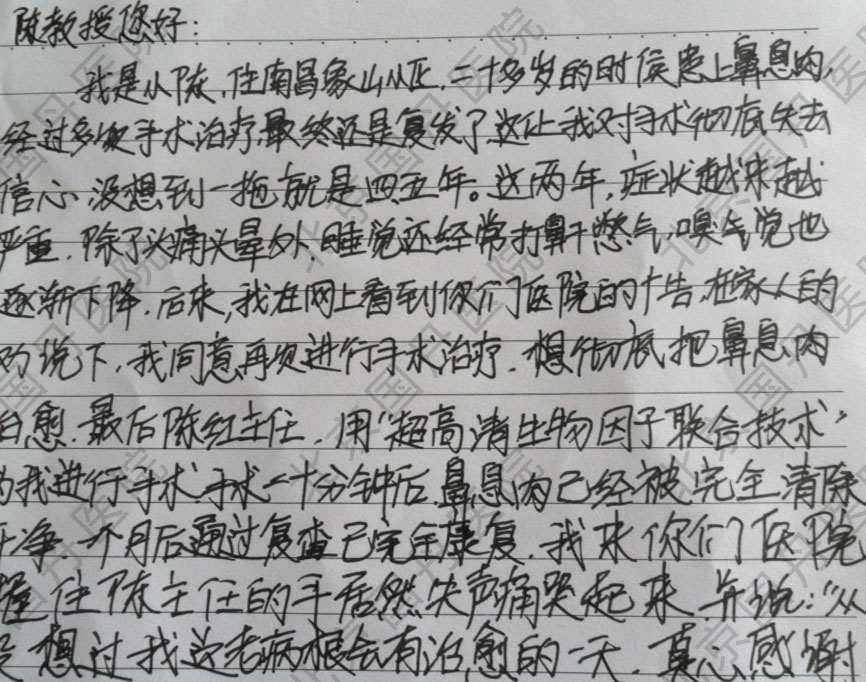 陈教授您好：
我是小陈，住南昌象山小区，二十多岁的时候患上鼻息肉，
经过多次手术治疗最终还是复发了这让我对手术彻底失去
信心 没想到一拖就是四五年。这两年，症状越来越
严重．除了头痛头晕外、睡觉还经常打鼾憋气，嗅气觉也
逐渐下降．后来，我在网上看到你们医院的广告．在家人的
劝说下，我同意再次进行手术治疗．想彻底把鼻息肉
治愈．最后陈红主任．用“超高清生物因子联合技术”
为我进行手术 手术二十分钟后 鼻息肉已经被完全清除
干净．一个月后通过复查已完全康复．我来你们医院
握住陈主任的手居然失声痛哭起来．并说：“从
没想过我这老病根会有治愈的一天．真心感谢
北京国丹医院